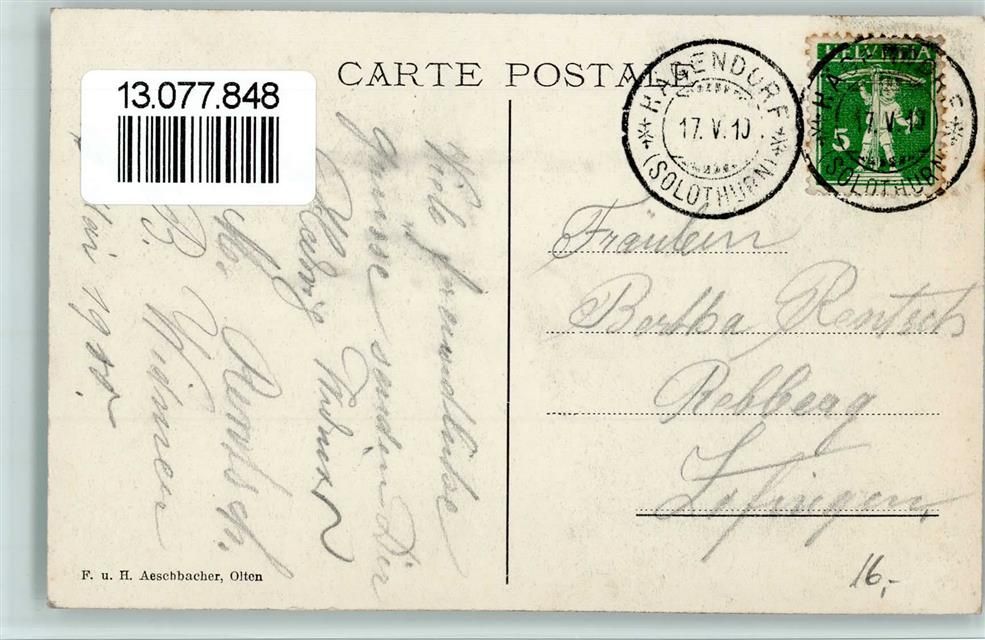 13.077.848
CARTE POSTALE
HÄGENDORF
17. V. 10
(SOLOTHURN)
HELVETIA
5
HÄGENDORF
17. V. 10
(SOLOTHURN)
Fräulein
Bertha Rentsch
Rebberg
Zofingen
16,-
Viele freundliche
grüsse senden Dir
Hedwig
M. Rentsch.
B. Widmer
F. u. H. Aeschbacher, Olten